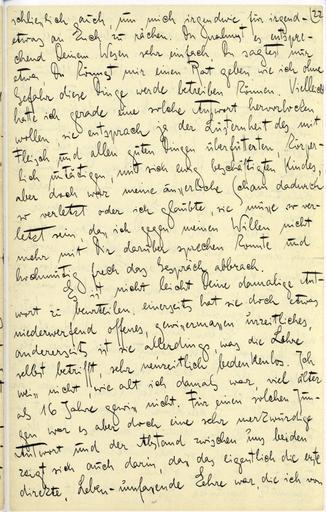 schließlich auch, um mich irgendwie für irgend- 22
etwas an Euch zu rächen. Du nahmst es entspre-
chend Deinem Wesen sehr einfach, Du sagtest nur
etwa Du könntest mir einen Rat geben wie ich ohne
Gefahr diese Dinge werde betreiben können. Vielleicht
hatte ich gerade eine solche Antwort hervorlocken
wollen sie entsprach ja der Lüsternheit des mit
Fleisch und allen guten Dingen überfütterten körper-
lich untätigen, mit sich ewig beschäftigten Kindes,
aber doch war meine äusserliche Scham dadurch
so verletzt oder ich glaubte, sie müsse so ver-
letzt sein, dass ich gegen meinen Willen nicht
mehr mit Dir darüber sprechen konnte und
hochmütig frech das Gespräch abbrach.
Es ist nicht leicht Deine damalige Ant-
wort zu beurteilen, einerseits hat sie doch etwas
niederwerfend offenes, gewissermassen urzeitliches,
andererseits ist sie allerdings was die Lehre
selbst betrifft, sehr neuzeitlich bedenkenlos. Ich
weiss nicht, wie alt ich damals war, viel älter
als 16 Jahre gewiss nicht. Für einen solchen Jun-
gen war es aber doch eine sehr merkwürdige
Antwort und der Abstand zwischen uns beiden
zeigt sich auch darin, dass das eigentlich die erste
direkte, Leben-umfassende Lehre war, die ich von